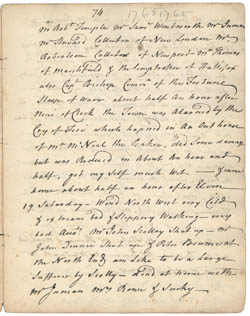 74 1765 1765
Mr Robt Temple Mr Saml Wentworth Mr Inman
Mr Stewart Collector of New London Mr
Robertson Collector of Newport Mr Thomas
of Marshfield & the Comptroller of Hallifax
also Capt Bishop Comr of the Fortune
Sloop of Warr about half an hour after
Nine o Clock the Town was alarmed by the
Cry of Fire which hapned in An Out house
of Mr McNeal the Baker, did Some damage
but was Reduced in About An hour and
half, got my Self much Wet. came
home about half an hour after Eleven
19 Saturday Wind North West very Cold
& extream bad & Slippery Walking very
bad Mr John Scollay Shut up Mr
John Dennie Shut up & Peter Bourne at
the North End am like to be a Large
Sufferer by Scollay Dind at home with
Mr Inman Mrs Rowe & Sucky